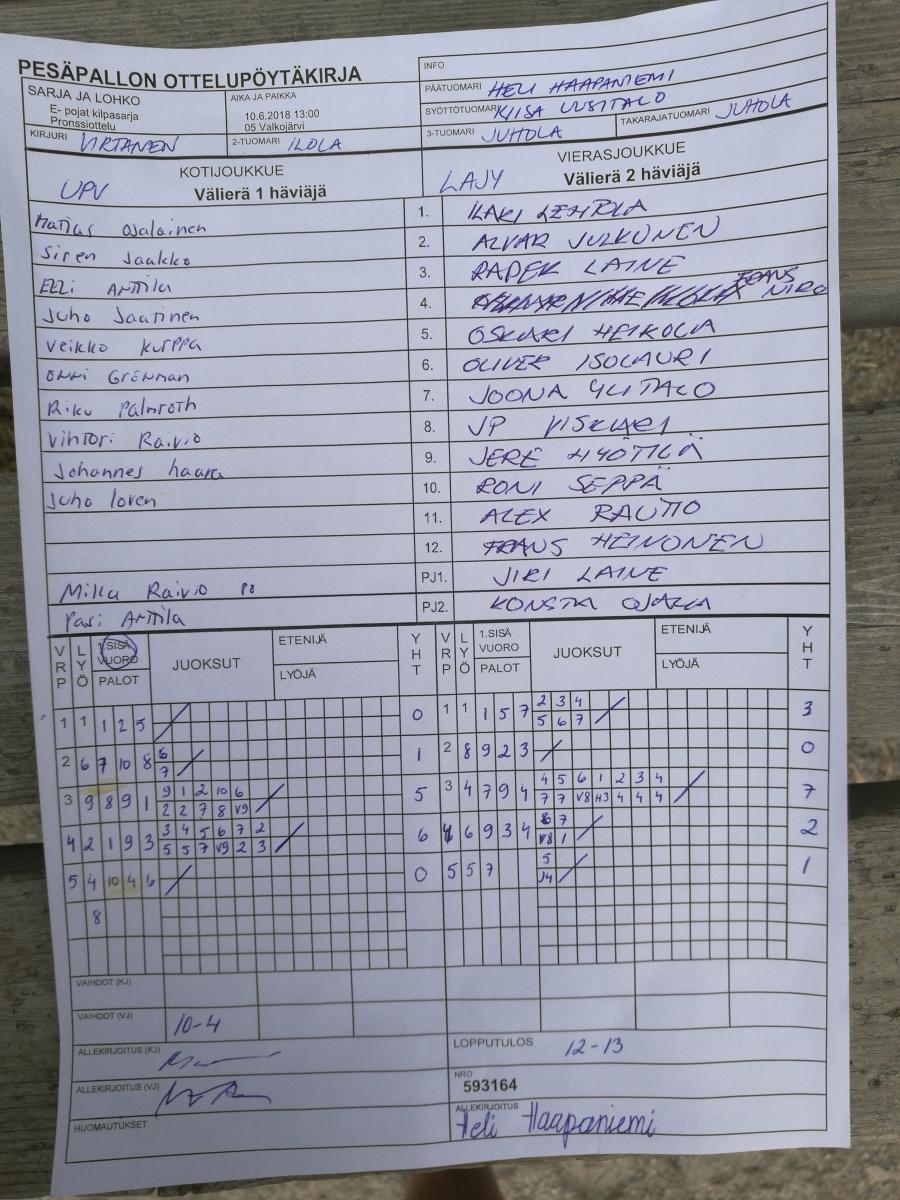 PESÄPALLON OTTELUPÖYTÄKIRJA
INFO
SARJA JA LOHKO
E- pojat kilpasarja
Pronssiottelu
AIKA JA PAIKKA
10.6.2018 13:00
05 Valkojärvi
PÄÄTUOMARI HELI HAAPANIEMI
SYÖTTÖTUOMARI KIISA UUSITALO
KIRJURI VIRTANEN
2-TUOMARI ILOLA
3-TUOMARI JUHOLA
TAKARAJATUOMARI JUHOLA
KOTIJOUKKUE
UPV Välierä 1 häviäjä
VIERASJOUKKUE
LAJY Välierä 2 häviäjä
Matias Ojalainen 1. ILARI LEHTOLA
Siren Jaakko 2. ALVAR JULKUNEN
Elli Anttila 3. RADEK LAINE
Juho Jaatinen 4. FRANS NIRO
Veikko Kurppa 5. OSKARI HEIKOLA
Onni Grönman 6. OLIVER ISOLAURI
Riku Palmroth 7. JOONA YLITALO
Vihtori Raivio 8. JP VISKARI
Johannes haara 9. JERE HYÖTILÄ
Juho loren 10. RONI SEPPÄ
11. ALEX RAUTIO
12. FRANS HEINONEN
Milka Raivio PJ1. JIRI LAINE
Pasi Anttila PJ2. KONSTA OJALA
VRP LYÖ 1.SISÄ VUORO PALOT JUOKSUT ETENIJÄ LYÖJÄ YHT VRP LYÖ 1.SISÄ VUORO PALOT JUOKSUT ETENIJÄ LYÖJÄ YHT
1 1 1 2 5 0 1 1 1 5 7 2 3 4 3
5 6 7
2 6 7 10 8 6 1 2 8 9 2 3 0
7
3 9 8 9 1 9 1 2 10 6 5 3 4 7 9 4 4 5 6 1 2 3 4 7
2 2 7 8 V9 7 7 V8 H3 4 4 4
4 2 1 9 3 3 4 5 6 7 2 6 4 6 9 3 4 6 7 2
5 5 7 V9 2 3 V8 1
5 4 10 4 6 0 5 5 7 5 1
J4
8
VAIHDOT (KJ)
VAIHDOT (VJ) 10-4
ALLEKIRJOITUS (KJ)
LOPPUTULOS 12-13
ALLEKIRJOITUS (VJ)
NRO
593164
HUOMAUTUKSET
ALLEKIRJOITUS
Heli Haapaniemi